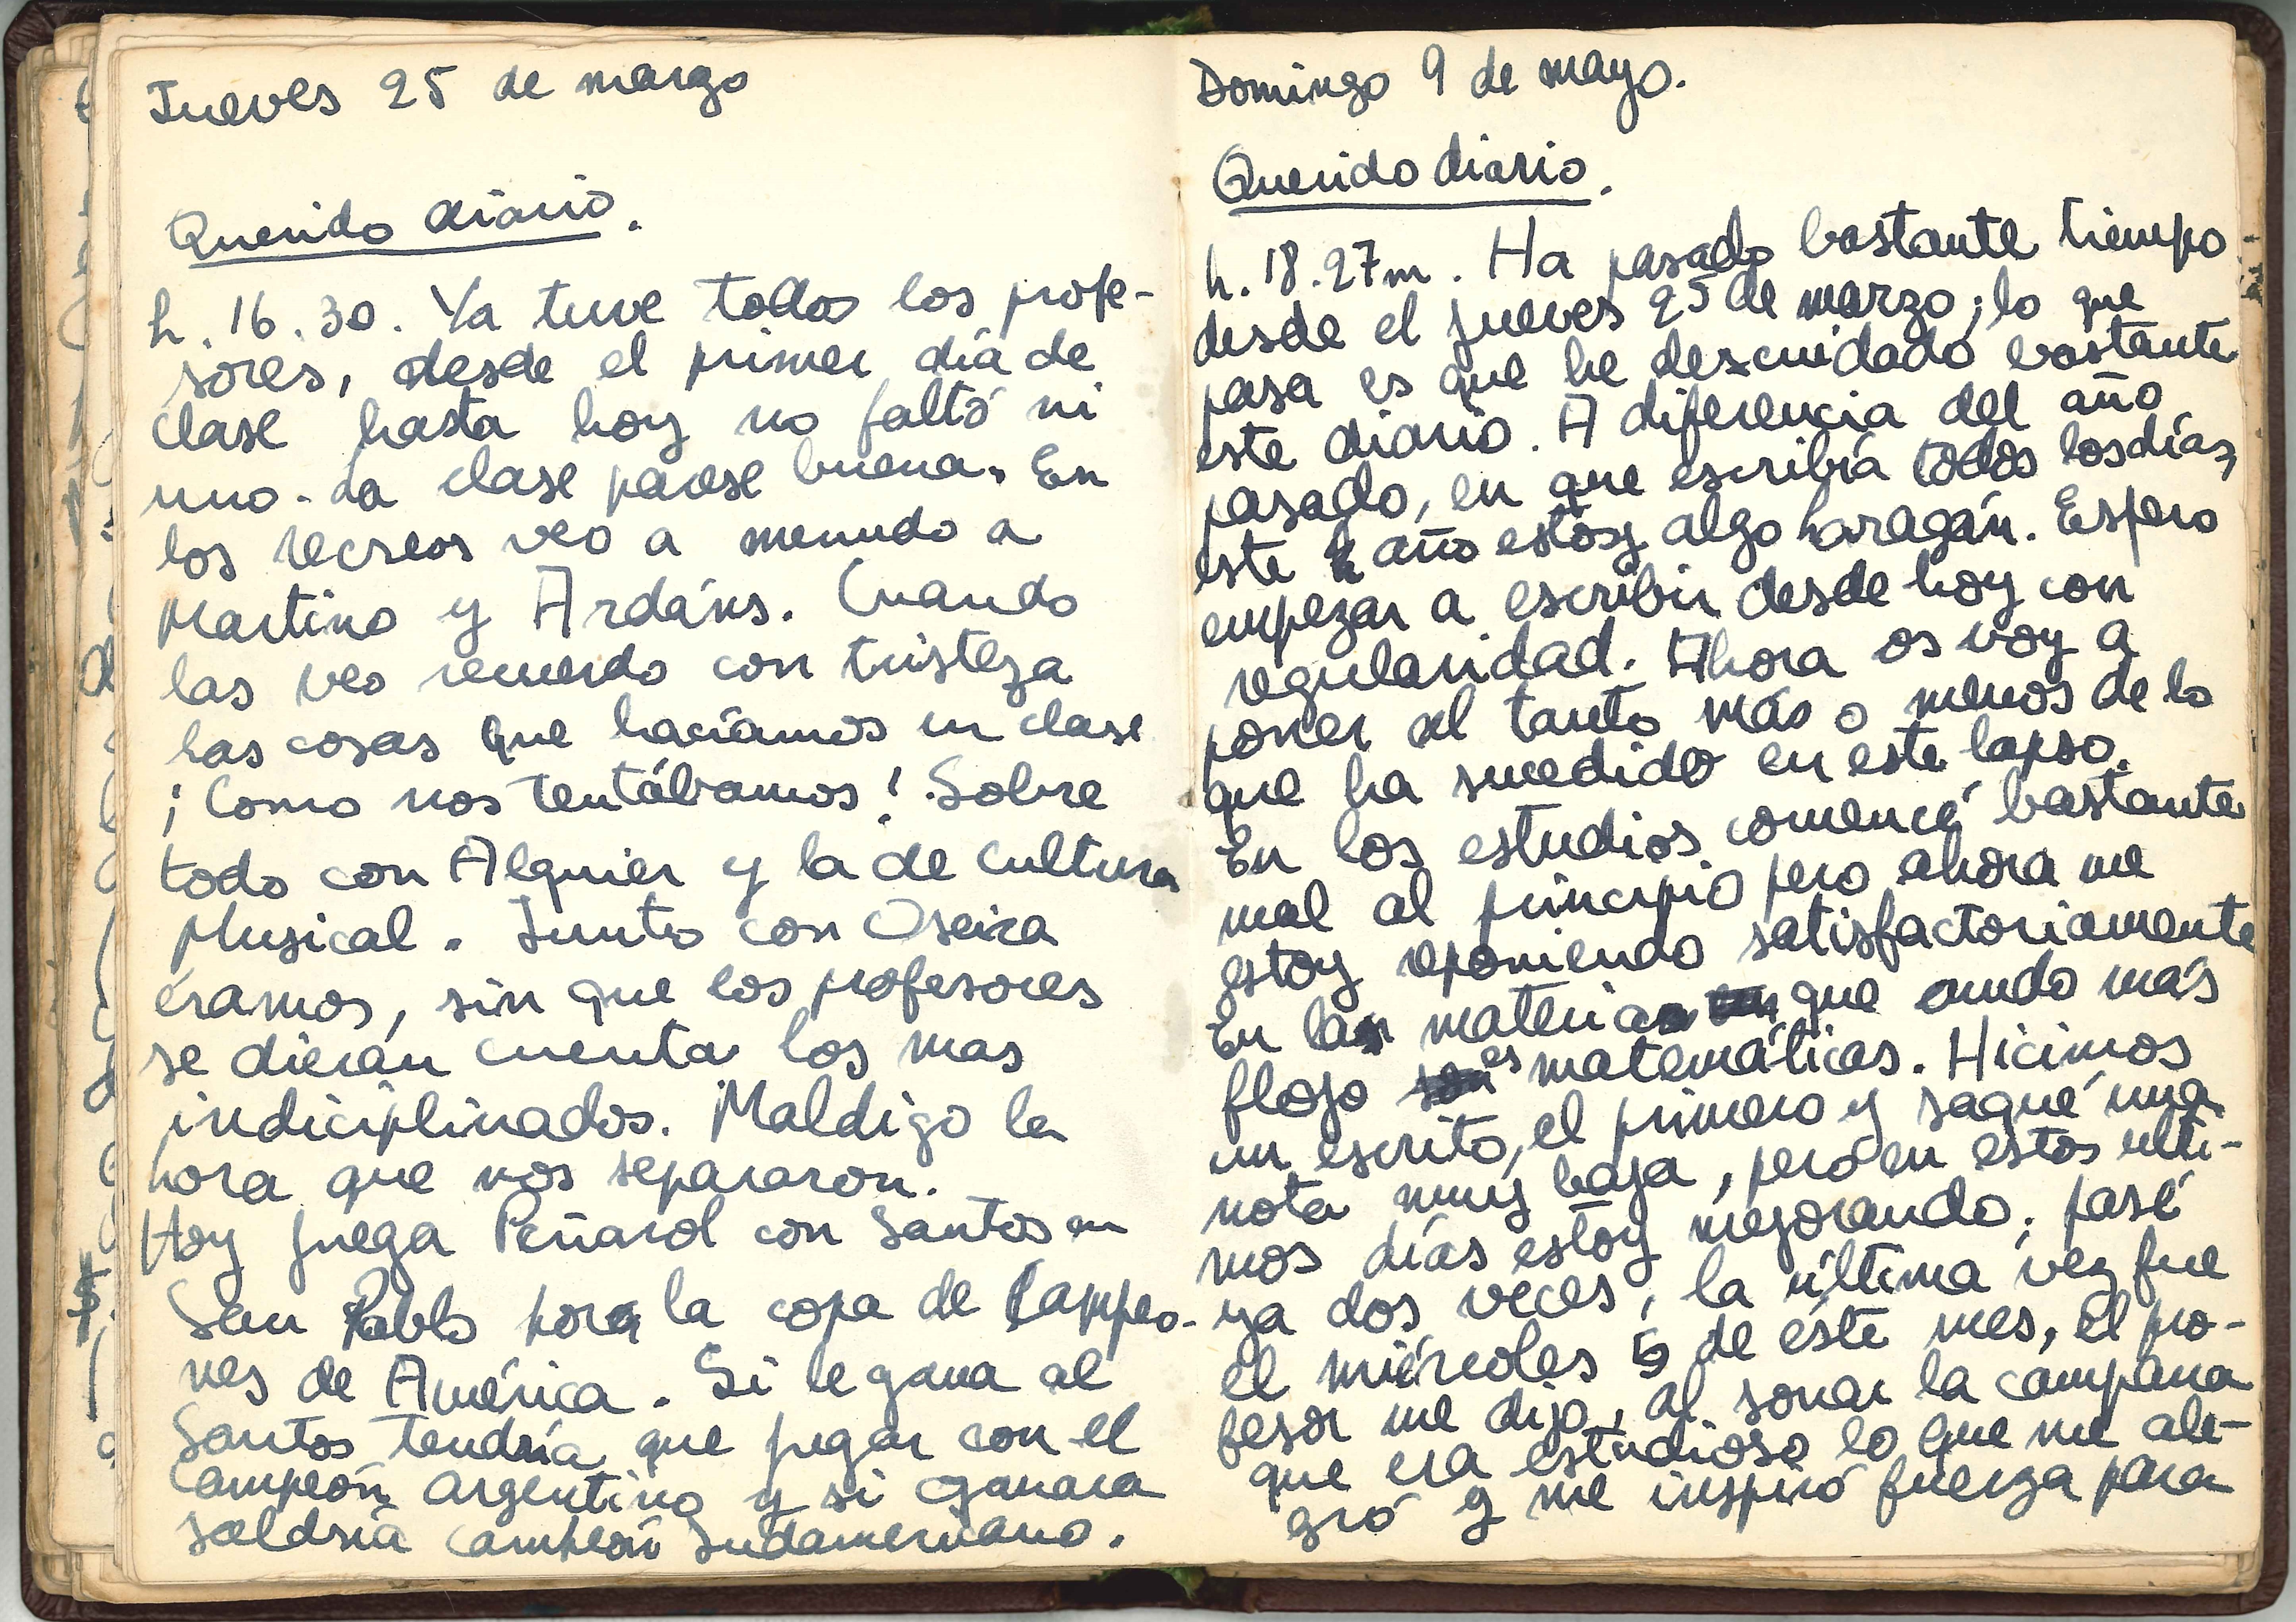 Jueves 25 de marzo
Querido diario.
h. 16.30. Ya tuve todos los profe-
sores, desde el primer día de
clase hasta hoy no faltó ni
uno. La clase parese buena. En
los recreos veo a menudo a
Martino y Ardáns. Cuando
las veo recuerdo con tristeza
las cosas que hacíamos en clase
¡Como nos tentábamos! Sobre
todo con Alquier y la de Cultura
Musical. Junto con Oseira
éramos, sin que los profesores
se dieran cuenta los mas
indiciplinados. Maldigo la
hora que nos separaron.
Hoy juega Peñarol con Santos en
San Pablo para la copa de Campeo-
nes de América. Si le gana al
Santos tendría que jugar con el
campeón argentino y si ganara
saldría campeón Sudamericano.
Domingo 9 de mayo.
Querido diario.
h. 18.27m. Ha pasado bastante tiempo
desde el jueves 25 de marzo; lo que
pasa es que he descuidado bastante
este diario. A diferencia del año
pasado, en que escribía todos los días,
este año estoy algo haragán. Espero
empezar a escribir desde hoy con
regularidad. Ahora os voy a
poner al tanto más o menos de lo
que ha sucedido en este lapso.
En los estudios comencé bastante
mal al principio pero ahora me
estoy reponiendo satisfactoriamente
En las materias que ando más
flojo es matemáticas. Hicimos
un escrito, el primero y saqué una
nota muy baja, pero en estos ulti-
mos días estoy mejorando, pasé
ya dos veces, la última vez fue
el miércoles 5 de éste mes, el pro-
fesor me dijo, al sonar la campana
que era estudioso lo que me ale-
gró y me inspiró fuerza para